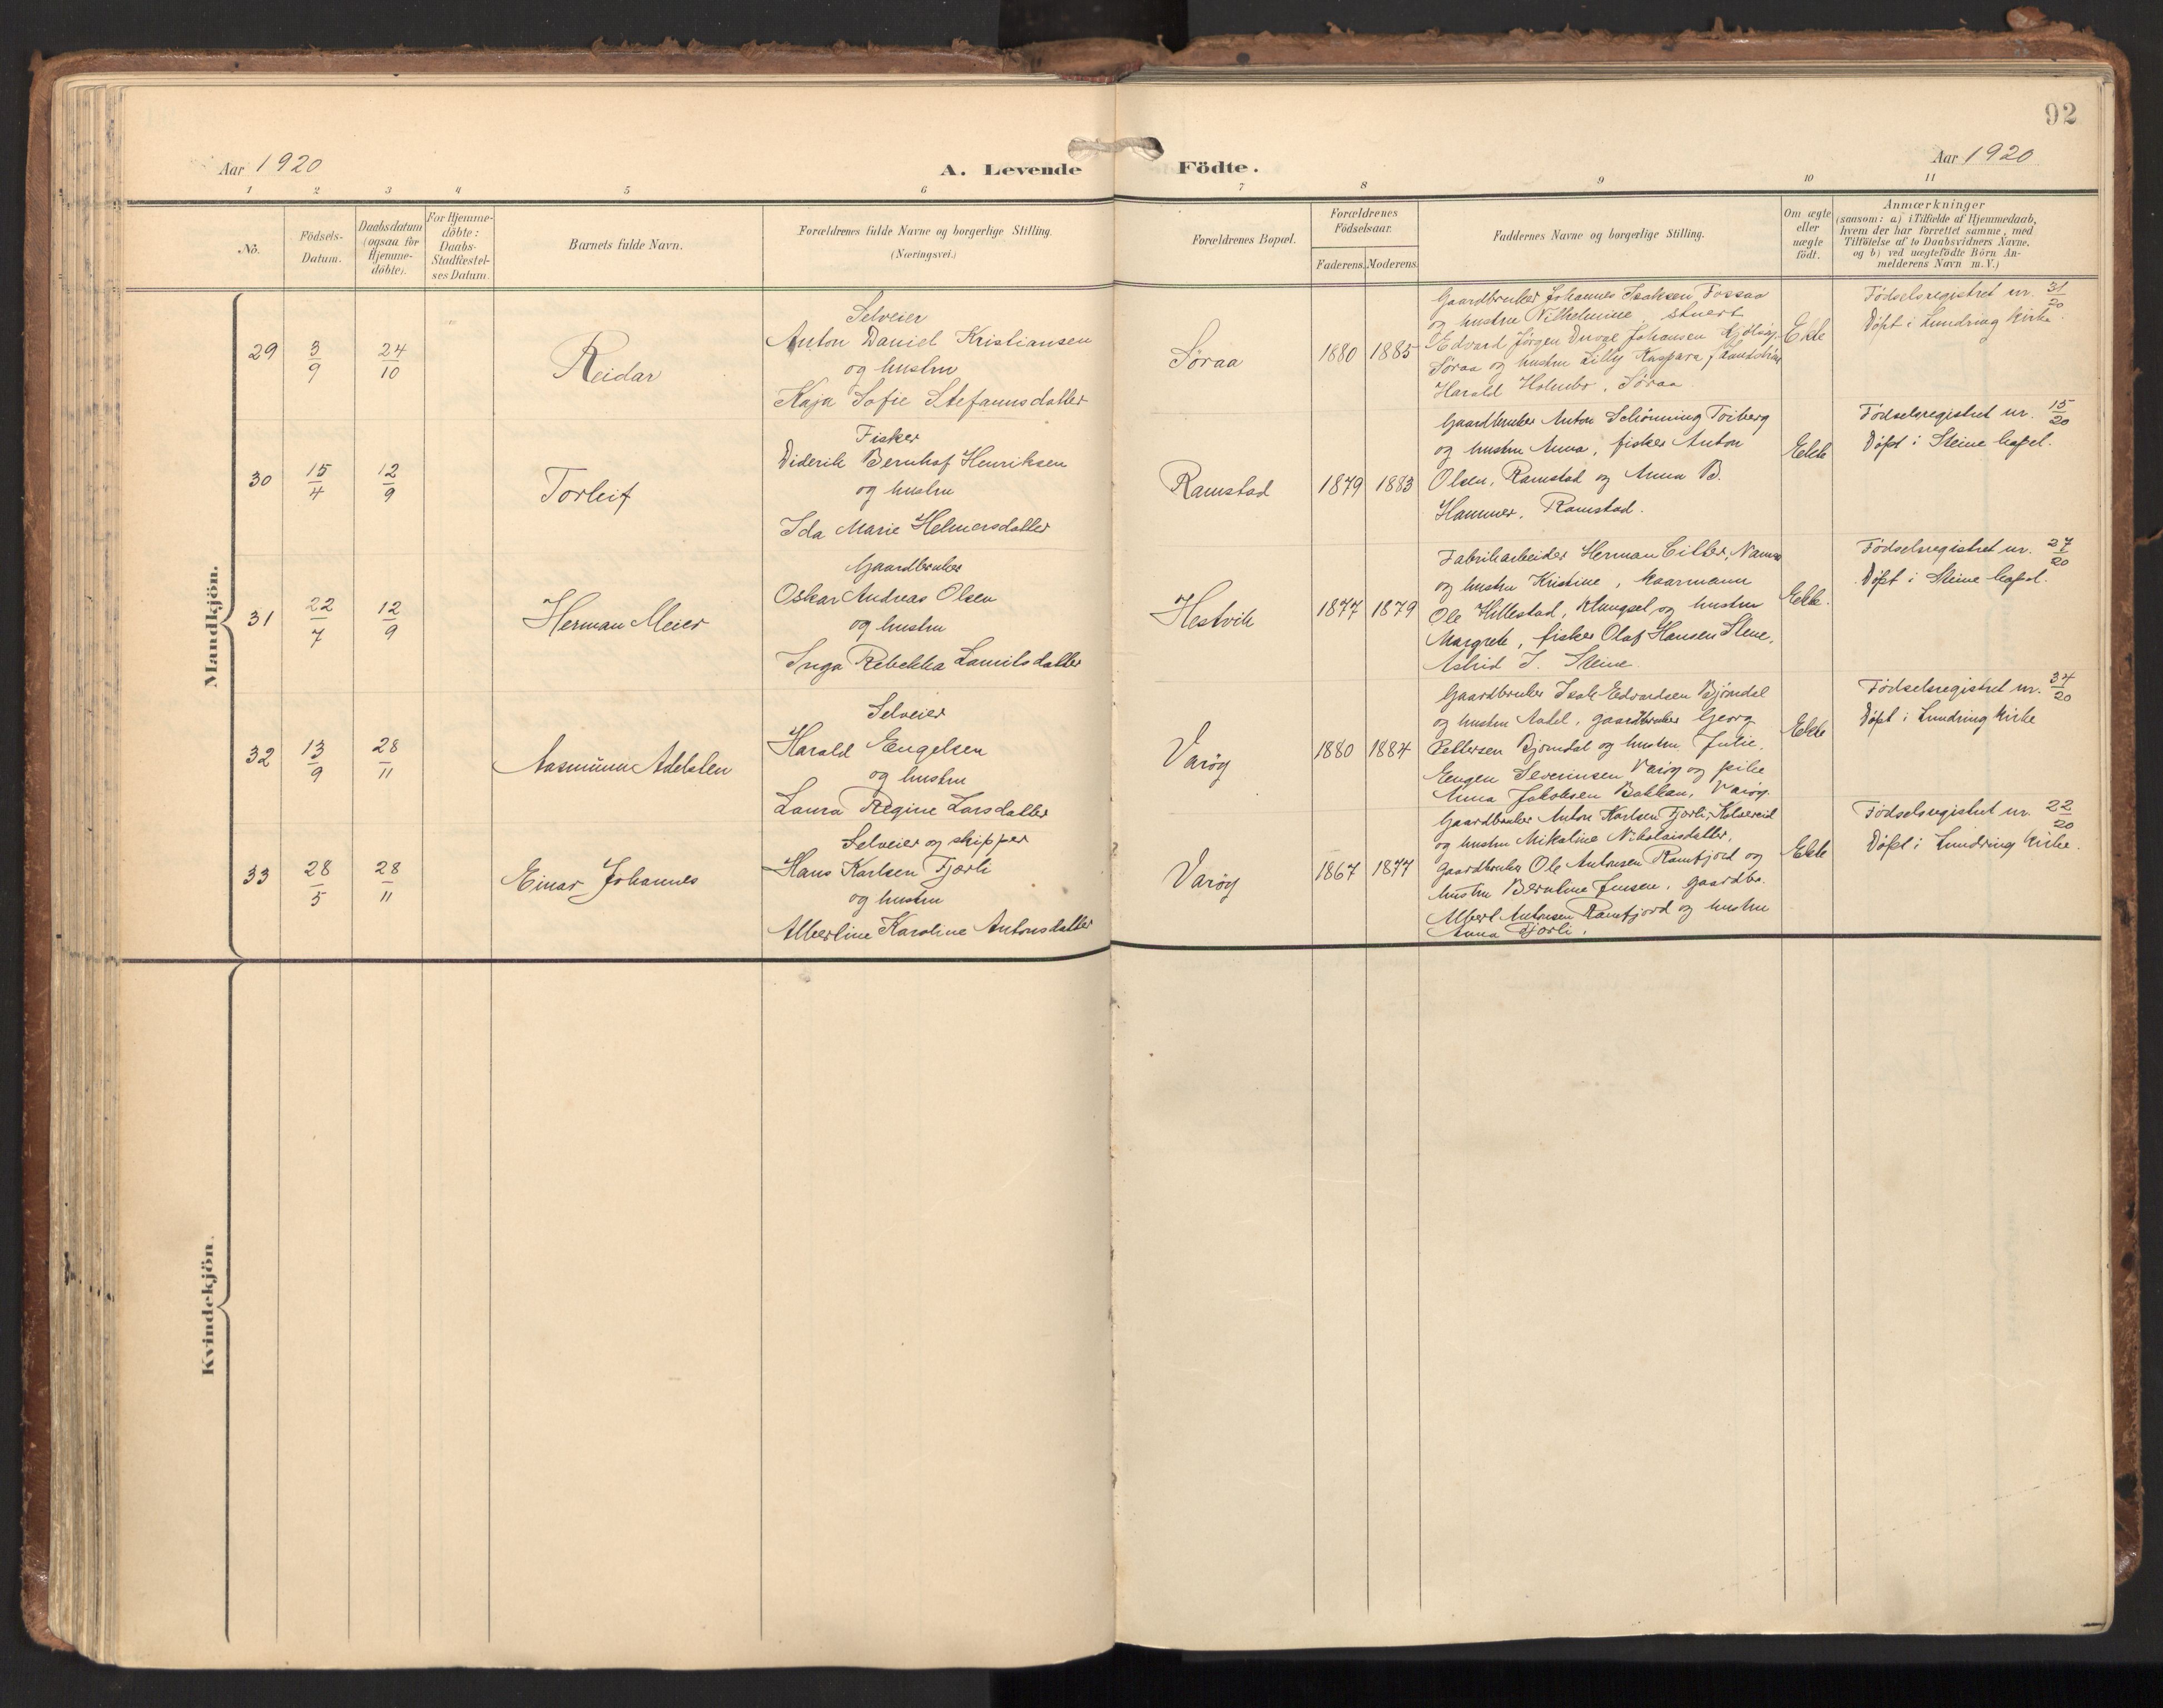 92
Aar 1920
A. Levende Födte.
Aar 1920
1 2 3 4 5 6 7 8 9 10 11
No.
Födsels-Datum.
Daabsdatum (ogsaa for Hjemme-döbte).
For Hjemme-döbte: Daabs-Stadfæstel-ses Datum.
Barnets fulde Navn.
Forældrenes fulde Navne og borgerlige Stilling.
(Næringsvei.)
Forældrenes Bopæl.
Forældrenes Födselsaar.
Faderens. Moderens.
Faddernes Navne og borgerlige Stilling.
Om ægte eller uægte födt.
Anmærkninger
(saasom: a) i Tilfælde af Hjemmedaab,
hvem der har forrettet samme, med
Tilföielse af to Daabsvidners Navne.
og b) ved uægtefödte Börn An-
melderens Navn m. V.)
Mandkjön.
29 3/9 24/10 Reidar
Selveier
Anton Daniel Kristiansen
og hustru
Kaja Sofie Stefanusdatter
Søraa 1880 1885
Gaardbruker Johannes Isaksen Fossaa
og hustru Vilhelmine, stuert
Edvard Jörgen Johansen
Søraa og hustru Lilly Kaspara,
Harald Holmbo, Søraa
Ekte
Födselsregistret nr. 31/20
Döpt i Lundring Kirke.
30 15/4 12/9 Torleif
Fisker
Diderik Bernhof Henriksen
og hustru
Ida Marie Helmersdatter
Ramstad 1879 1883
Gaardbruker Anton Schönning Toiberg
og hustru Anna, fisker Anton
Olsen, Ramstad og Anna B.
Hammer, Ramstad.
Ekte
Födselsregistret nr. 15/20
Döpt i Steine kapel.
31 22/7 12/9 Herman Meier
Gaardbruker
Oskar Andreas Olsen
og hustru
Inga Rebekka Lauritsdatter
Hestvik 1877 1879
Fabrikarbeider Herman
og hustru Kristine,
Ole Hillestad, og hustru
Margrete, fisker Olaf Hansen Stene,
Astrid S. Steine.
Ekte.
Födselsregistret nr. 27/20
Döpt i Steine kapel.
32 13/9 28/11 Aasmunn Adelsten
Selveier
Harald Eugelsen
og hustru
Laura Regine Larsdatter
Varöy 1880 1884
Gaardbruker Isak Edvardsen Björndal
og hustru gaardbruker Georg
Pettersen Bjorndal og hustru Julie,
Eugen Severinsen Varöy og pike
Anna Jakobsen Bakkan, Varöy.
Ekte
Födselsregistret nr. 34/20
Döpt i Lundring kirke
33 28/5 28/11 Einar Johannes
Selveier og skipper
Hans Karlsen Fjorli
og hustru
Albertine Karoline Antonsdatter
Varöy 1867 1877
Gaardbruker Anton Karlsen Fjorli, Kolvereid
og hustru Mikaline Nikolaisdatter,
gaardbruker Ole Antonsen Ramfjord og
hustru Berntine Jensen, gaardbr.
Albert Antonsen Ramfjord og hustru
Anna Fjorli.
Ekte
Födselsregistret nr. 22/20
Döpt i Lundring Kirke.
Kvindekjön.